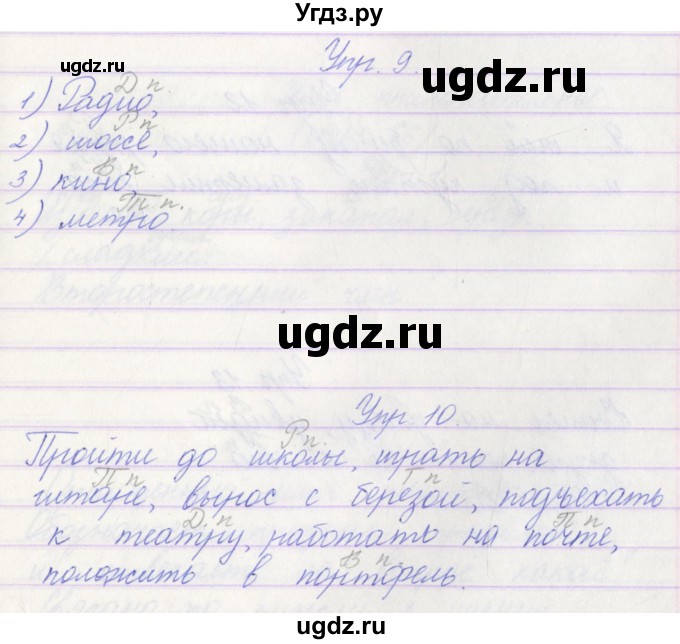 Угдз.ру
ugdz.ru
ugdz.ru
Упр. 9.
Д п
1) Радио,
Р п
2) шоссе,
В п
3) кино,
П п.
4) метро.
ugdz.ru
Упр 10.
Р п.
Пройти до школы, играть на
П п
гитаре, вырос с берёзой, подъехать
Д. п П п
к театру, работать на почте,
В п
положить в портфель.
ugdz.ru